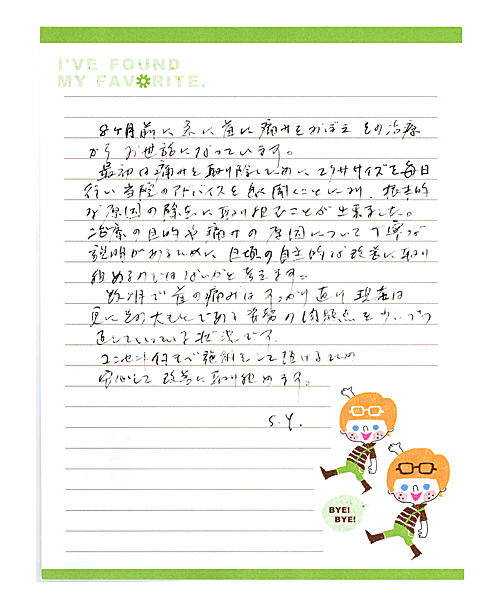 I'VE FOUND
MY FAVORITE.
8ヶ月前に急に首に痛みをおぼえ その治療
から お世話になっています。
最初は痛みを取り除くために エクササイズを毎日
行い 当院のアドバイスを良く聞くことにより、根本的
な原因の除去に取り組むことが出来ました。
治療の目的や痛みの原因について丁寧な
説明があるために 日頃の自主的な改善に取り
組めるのではないかと考えます。
数ヶ月で首の痛みはすっかり直り 現在は
更にその大もとである姿勢の問題点を少しづつ
直していっている状況です。
コンセント付きで施術をして頂けるため
安心して 改善に取り組めます。
S.Y.
BYE!
BYE!